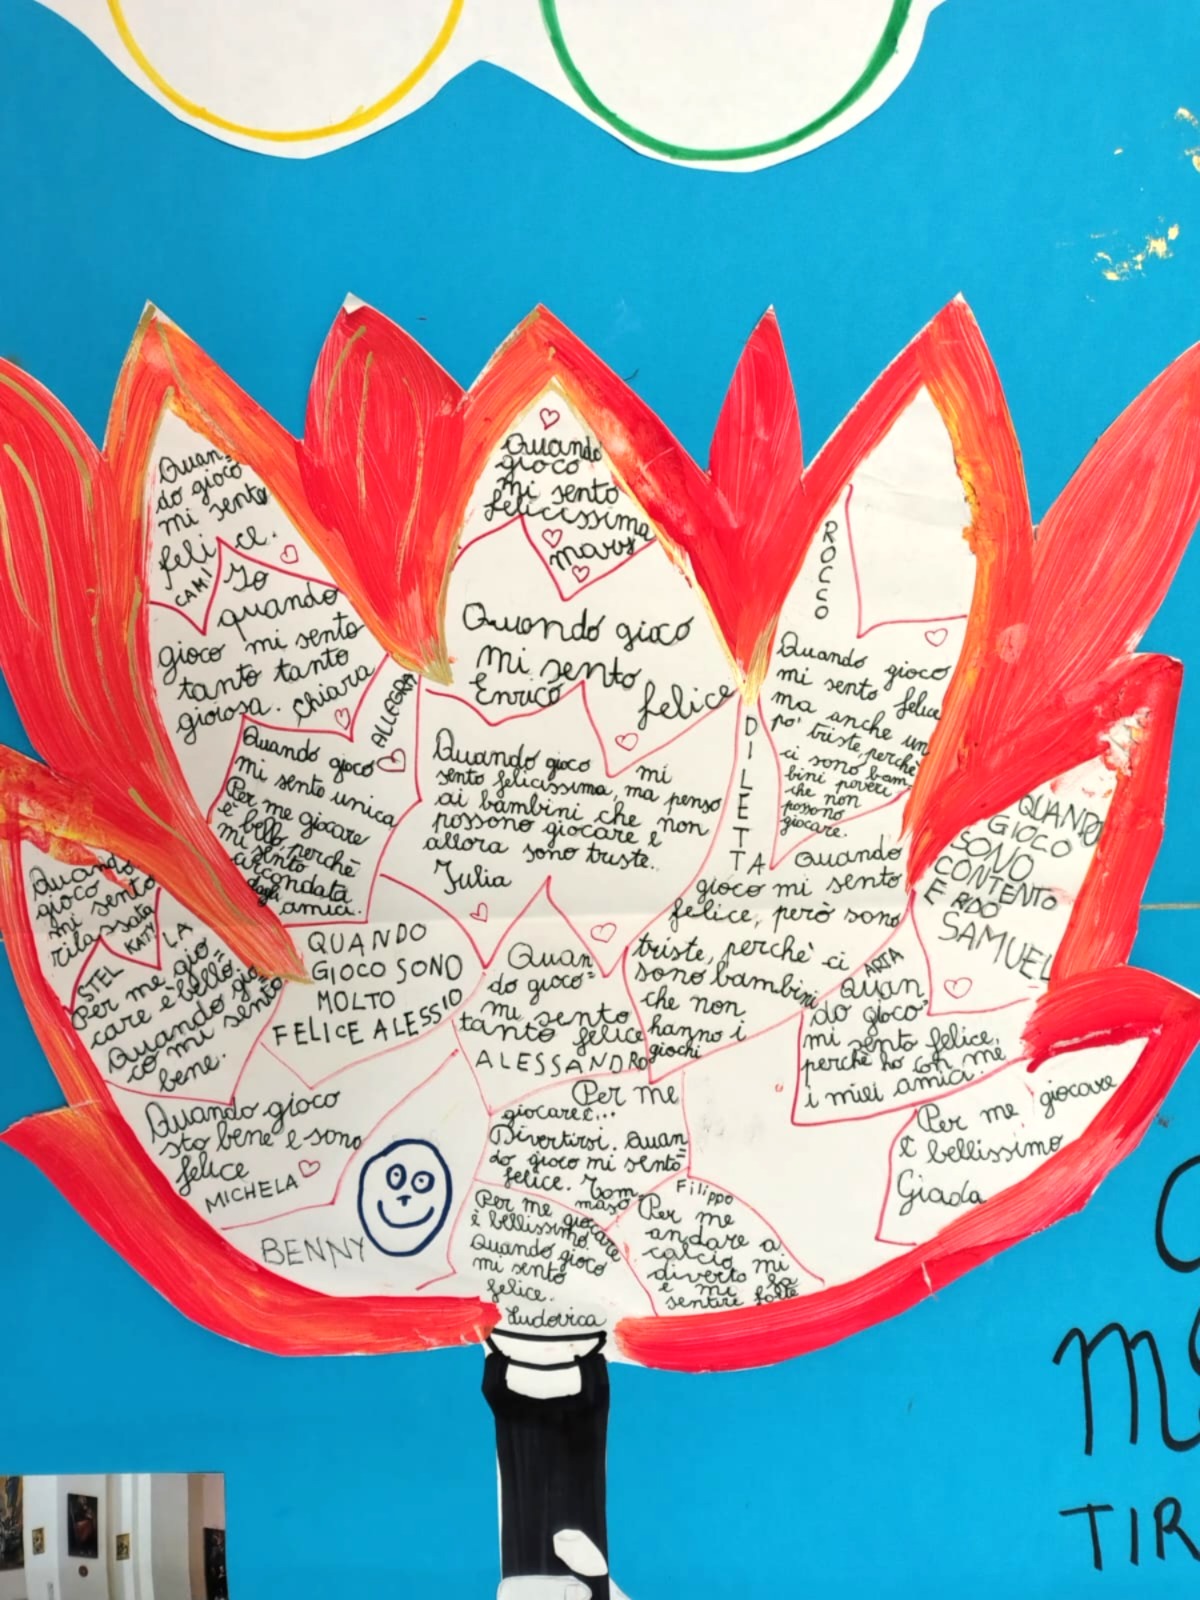 Quan=
do gioco
mi sento
felice.
CAMI
Io
quando
gioco mi sento
tanto tanto
gioiosa. Chiara
ALLEGRA
Quando gioco
mi sento unica
Per me giocare
è bello, perchè
mi sento
circondata
dagli
amici.
Quando
gioco
mi sento
rilassata
KATY
STEL LA
Per me gio=
care è bello.
Quando gio=
co mi sento
bene.
QUANDO
GIOCO SONO
MOLTO
FELICE ALESSIO
Quando gioco
sto bene e sono
felice
MICHELA
BENNY
Quando
gioco
mi sento
felicissima
Mary
Quando gioco
mi sento
Enrico felice
Quando gioco mi
sento felicissima, ma penso
ai bambini che non
possono giocare e
allora sono triste.
Julia
Quan
do gioco=
mi sento
tanto felice
ALESSANDRO
Per me
giocare è...
Divertirsi. Quan
do gioco mi sento=
felice. Tom
maso
Per me giocare
è bellissimo.
Quando gioco
mi sento
felice.
Ludovica
Filippo
Per me
andare a
calcio mi
diverto fa
e mi
sentire forte
ROCCO
Quando gioco
mi sento felice
ma anche un
po' triste, perchè
ci sono bam=
bini poveri
che non
possono
giocare.
DILETTA
Quando
gioco mi sento
felice, però sono
triste, perchè ci
sono bambini
che non
hanno i
giochi
ARIA
Quan
do gioco=
mi sento felice,
perchè ho con me
i miei amici.
QUANDO
GIOCO
SONO
CONTENTO
E RDO
SAMUEL
Per me giocare
è bellissimo
Giada
TIR